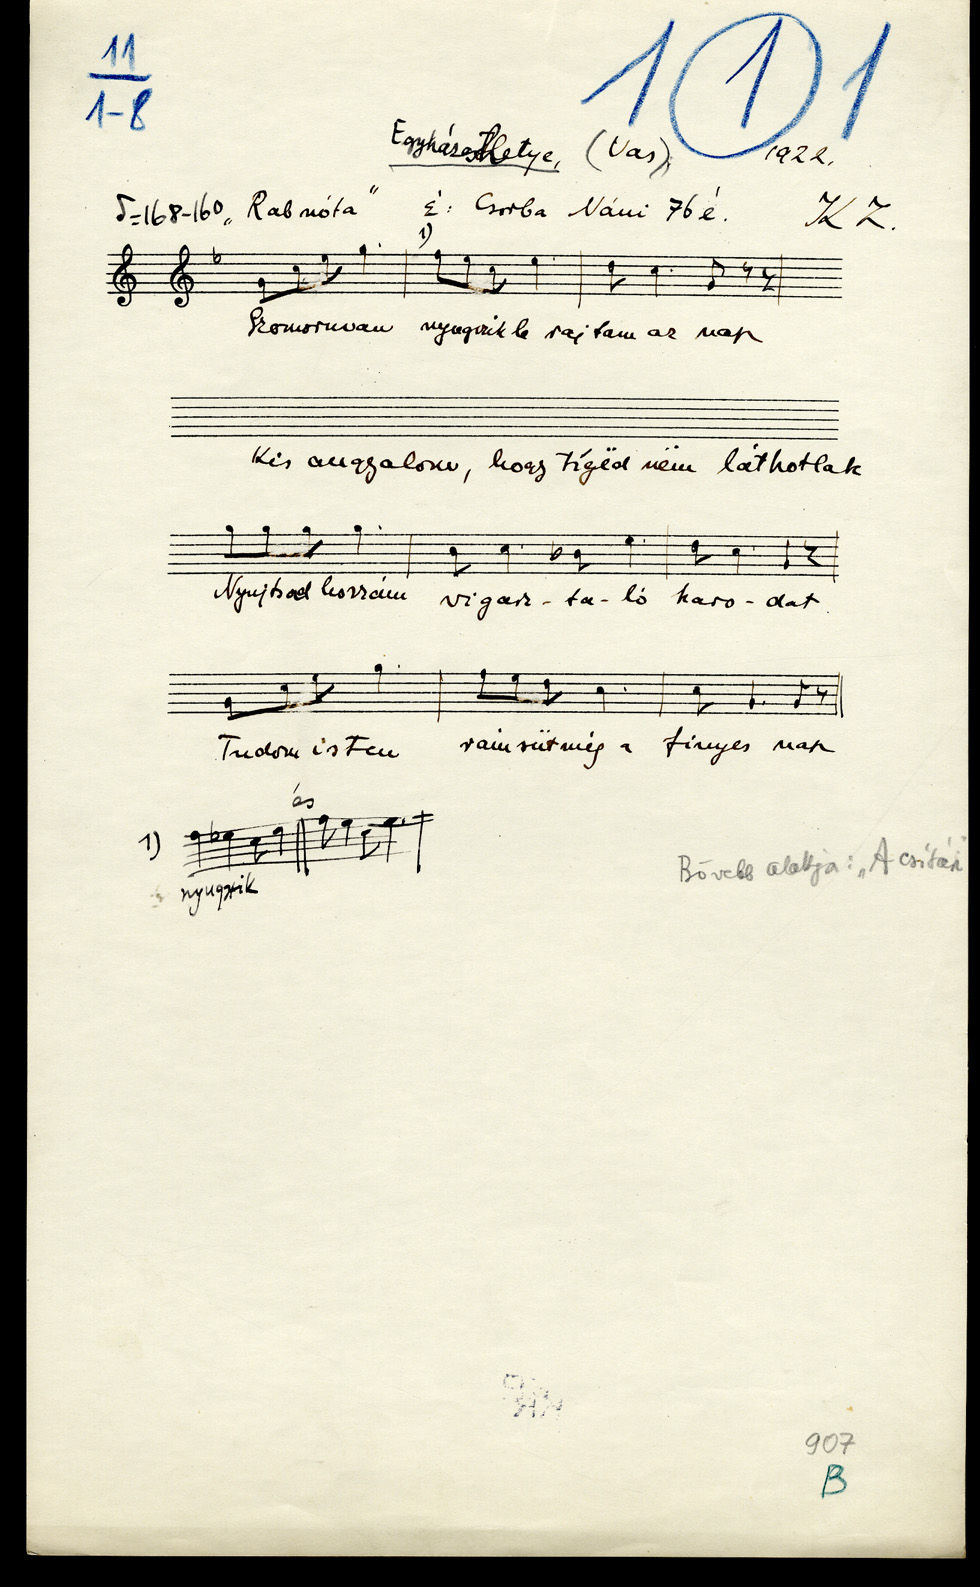 11
1-8
1 1 1
Egyházashetye, (Vas), 1922.
♪=168-160 „Rabnóta" É: Csorba Náni 76 é. K Z.
1)
Szomoruvan nyugszik le rajtam az nap
Kis angyalom, hogy tígëd nëm láthotlak
Nyujtsad hozzám vigasz - ta - ló karo - dat
Tudom isten rám süt még a fínyes nap
és
1)
nyugszik
Bővebb alakja: „A csitári"
907
B